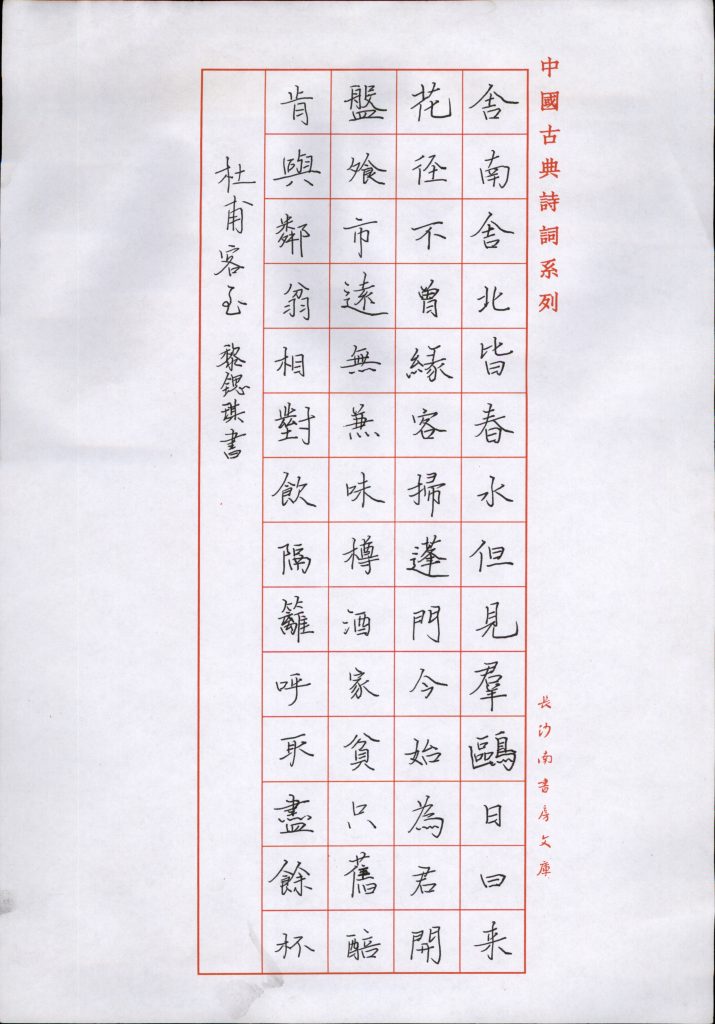 中國古典詩詞系列
舍南舍北皆春水但見羣鷗日日来
花径不曾緣客掃蓬門今始為君開
盤飧市遠無兼味樽酒家貧只舊醅
肯與鄰翁相對飲隔籬呼取盡餘杯
杜甫客至 黎鍶琪書
長沙南書房文庫